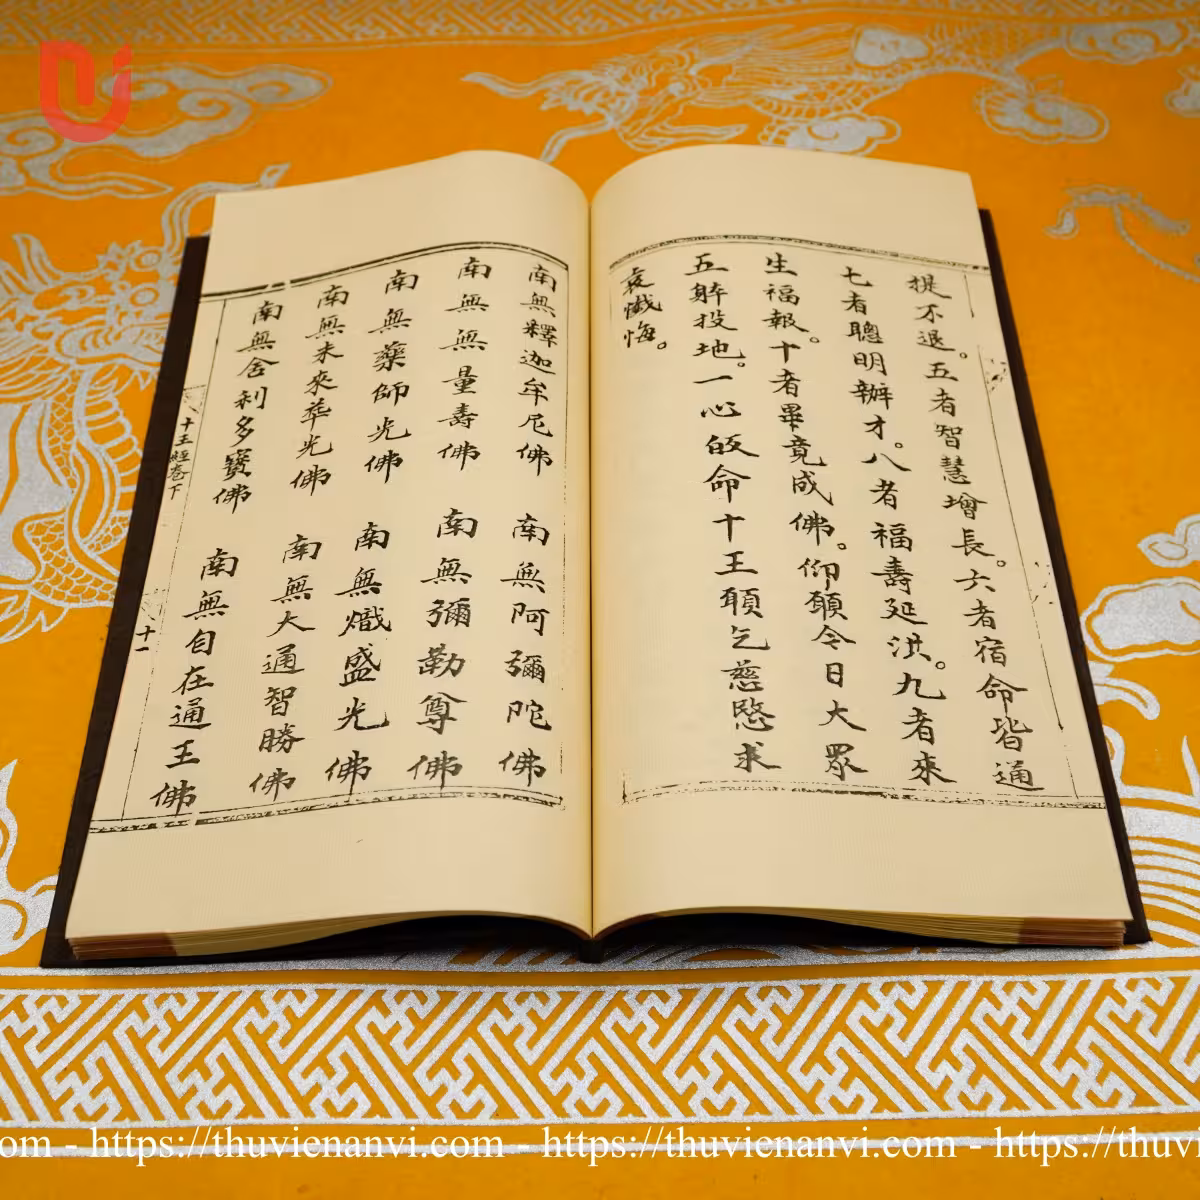 提不退。五者智慧增長。六者宿命皆通
七者聰明辦才。八者福壽延洪。九者來
生福報。十者畢竟成佛。仰願今日大眾
五躰投地。一心皈命十王頋乞慈愍求
哀懺悔。
南無釋迦牟尼佛 南無阿彌陀佛
南無無量壽佛 南無彌勒尊佛
南無藥師光佛 南無熾盛光佛
南無未來華光佛 南無大通智勝佛
南無舍利多寶佛 南無自在通王佛
十王經卷下 十一
https://thuvienanvi.com - https://thuvienanvi.com